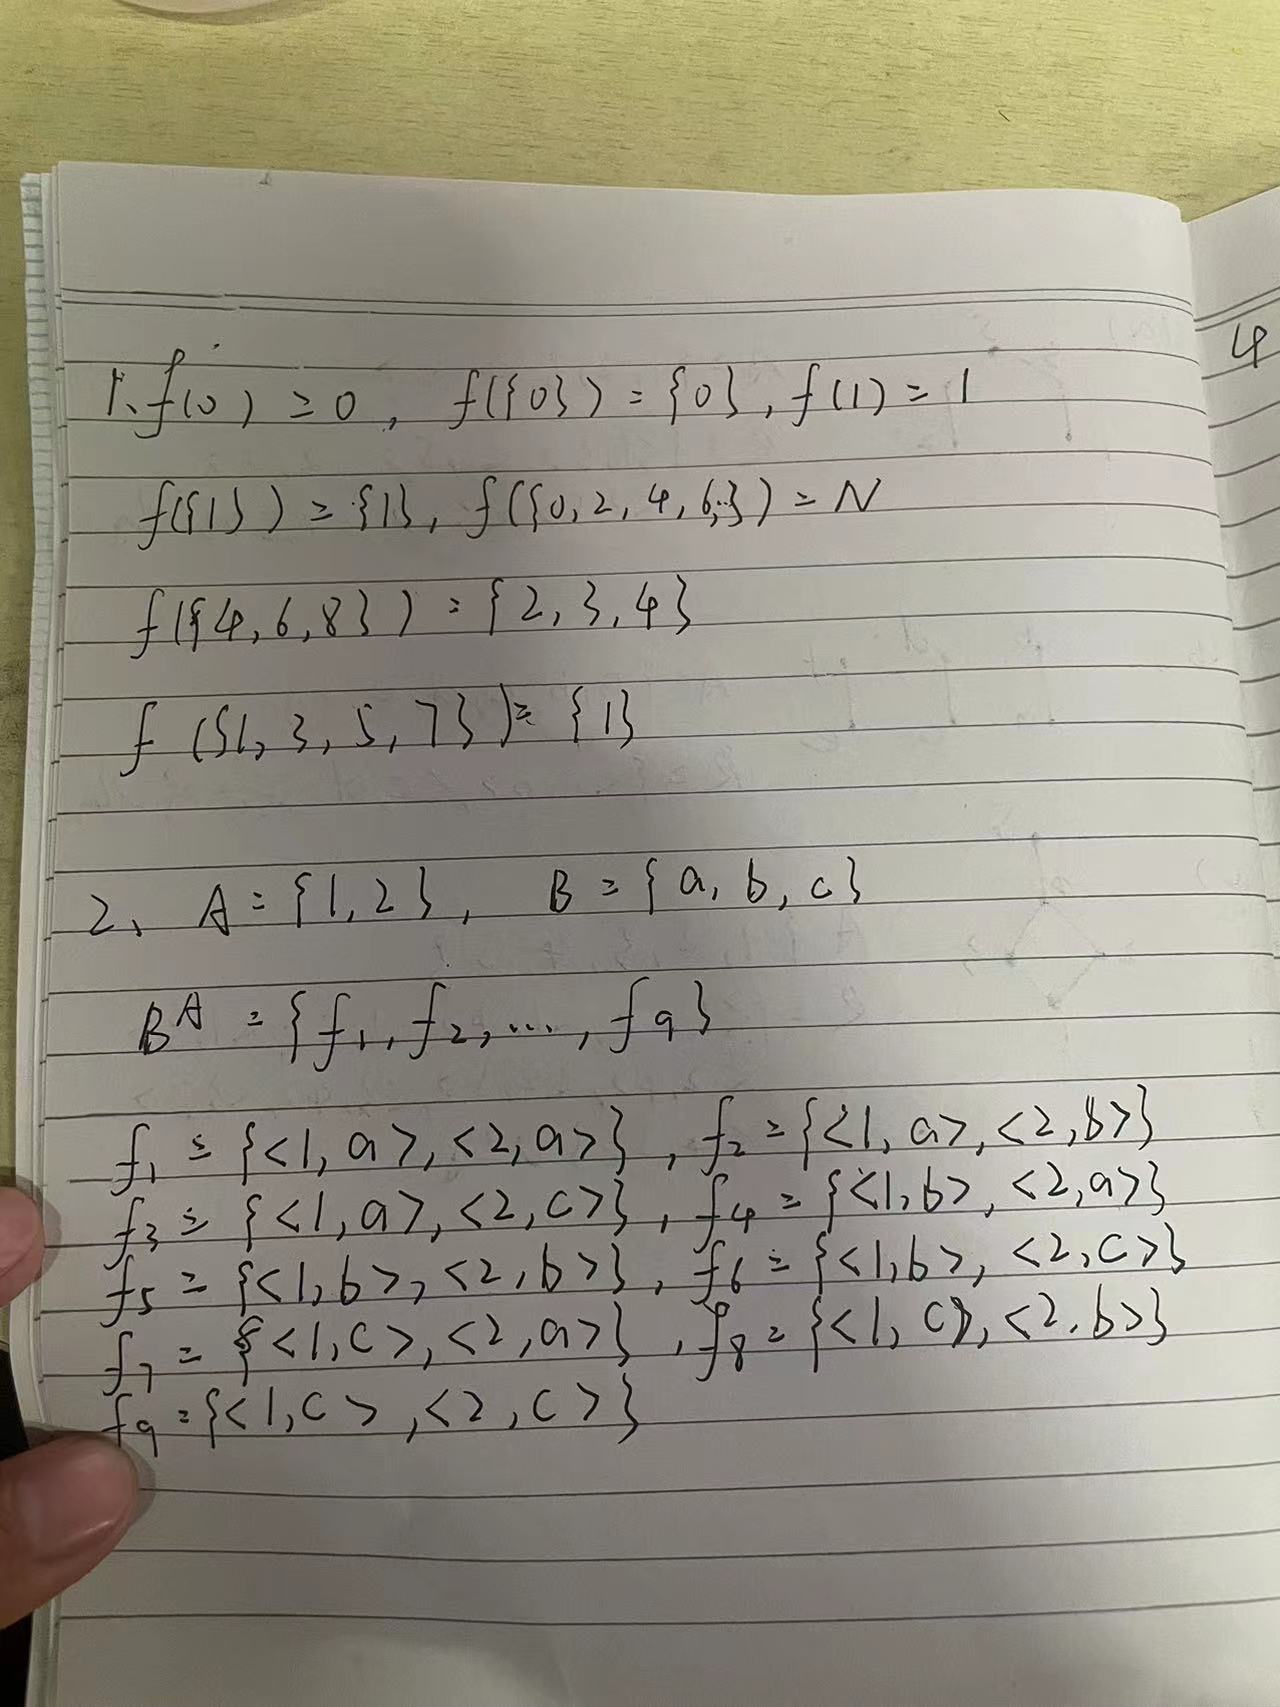 1、f(0) = 0, f({0}) = {0}, f(1) = 1
f({1}) = {1}, f({0, 2, 4, 6,…}) = N
f({4, 6, 8}) = {2, 3, 4}
f({1, 3, 5, 7}) = {1}
2、A = {1, 2}, B = {a, b, c}
Bᴬ = {f₁, f₂, …, f₉}
f₁ = {<1, a>, <2, a>}, f₂ = {<1, a>, <2, b>}
f₃ = {<1, a>, <2, c>}, f₄ = {<1, b>, <2, a>}
f₅ = {<1, b>, <2, b>}, f₆ = {<1, b>, <2, c>}
f₇ = {<1, c>, <2, a>}, f₈ = {<1, c>, <2, b>}
f₉ = {<1, c>, <2, c>}
4